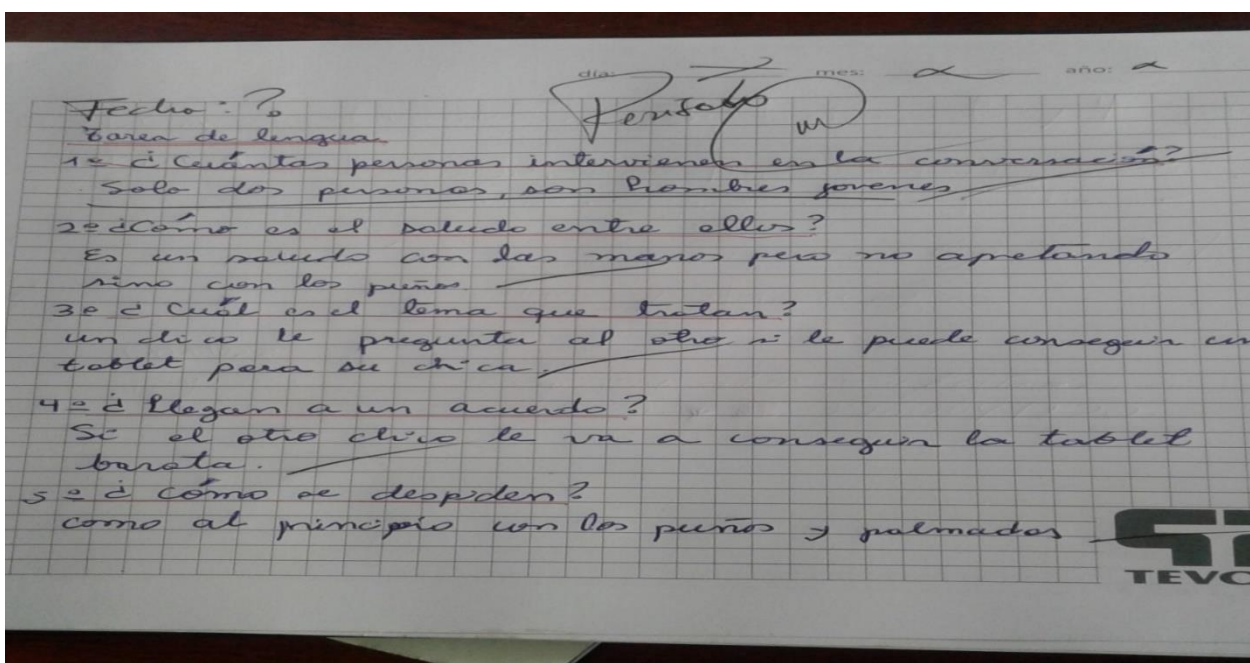 día: mes: año:
Fecha: ?
Tarea de lengua
1º ¿Cuántas personas intervienen en la conversación?
Solo dos personas, son hombres jovenes
2º ¿Cómo es el saludo entre ellos?
Es un saludo con las manos pero no apretando
sino con los puños
3º ¿Cuál es el tema que tratan?
un chico le pregunta al otro si le puede conseguir un
tablet para su chica.
4º ¿Llegan a un acuerdo?
Si el otro chico le va a conseguir la tablet
barata.
5º ¿cómo se despiden?
como al principio con los puños y palmadas
TEVO